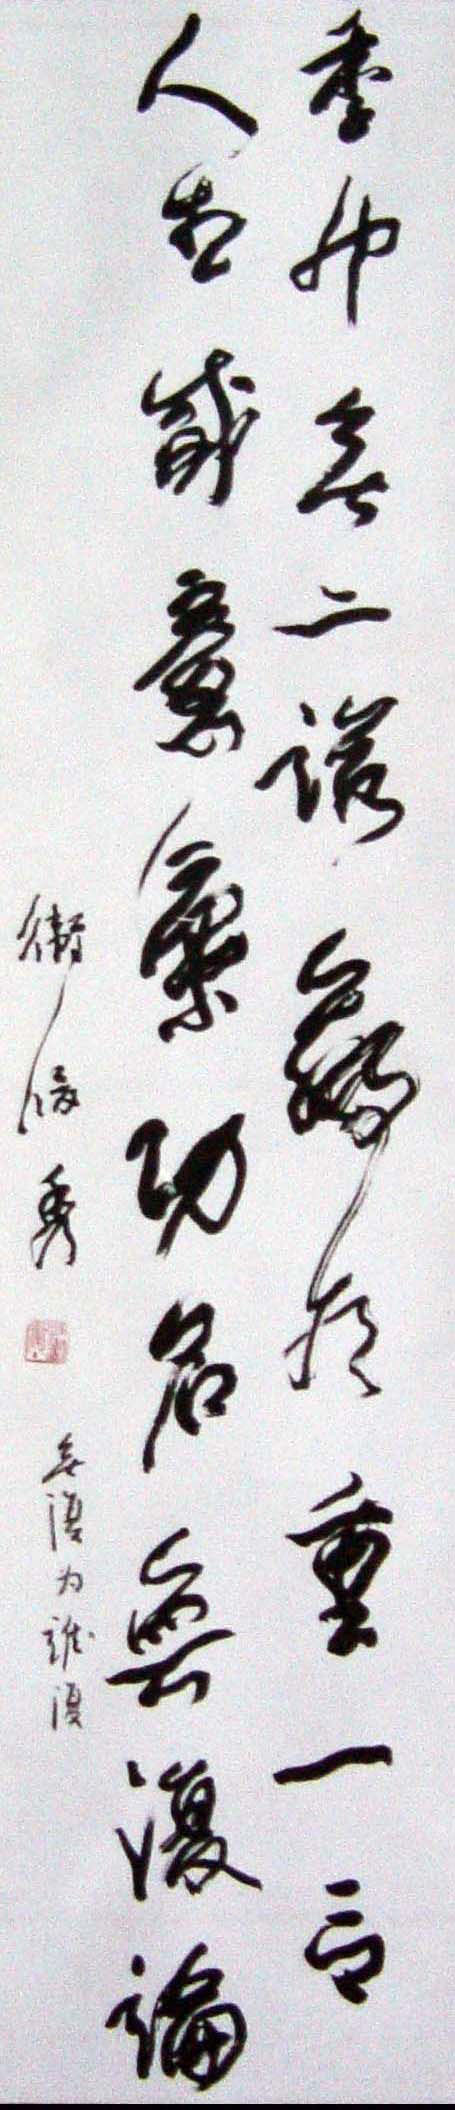 季布無二諾嬴重一言
人生感意氣功名無復論
衛俊秀
無復为誰復